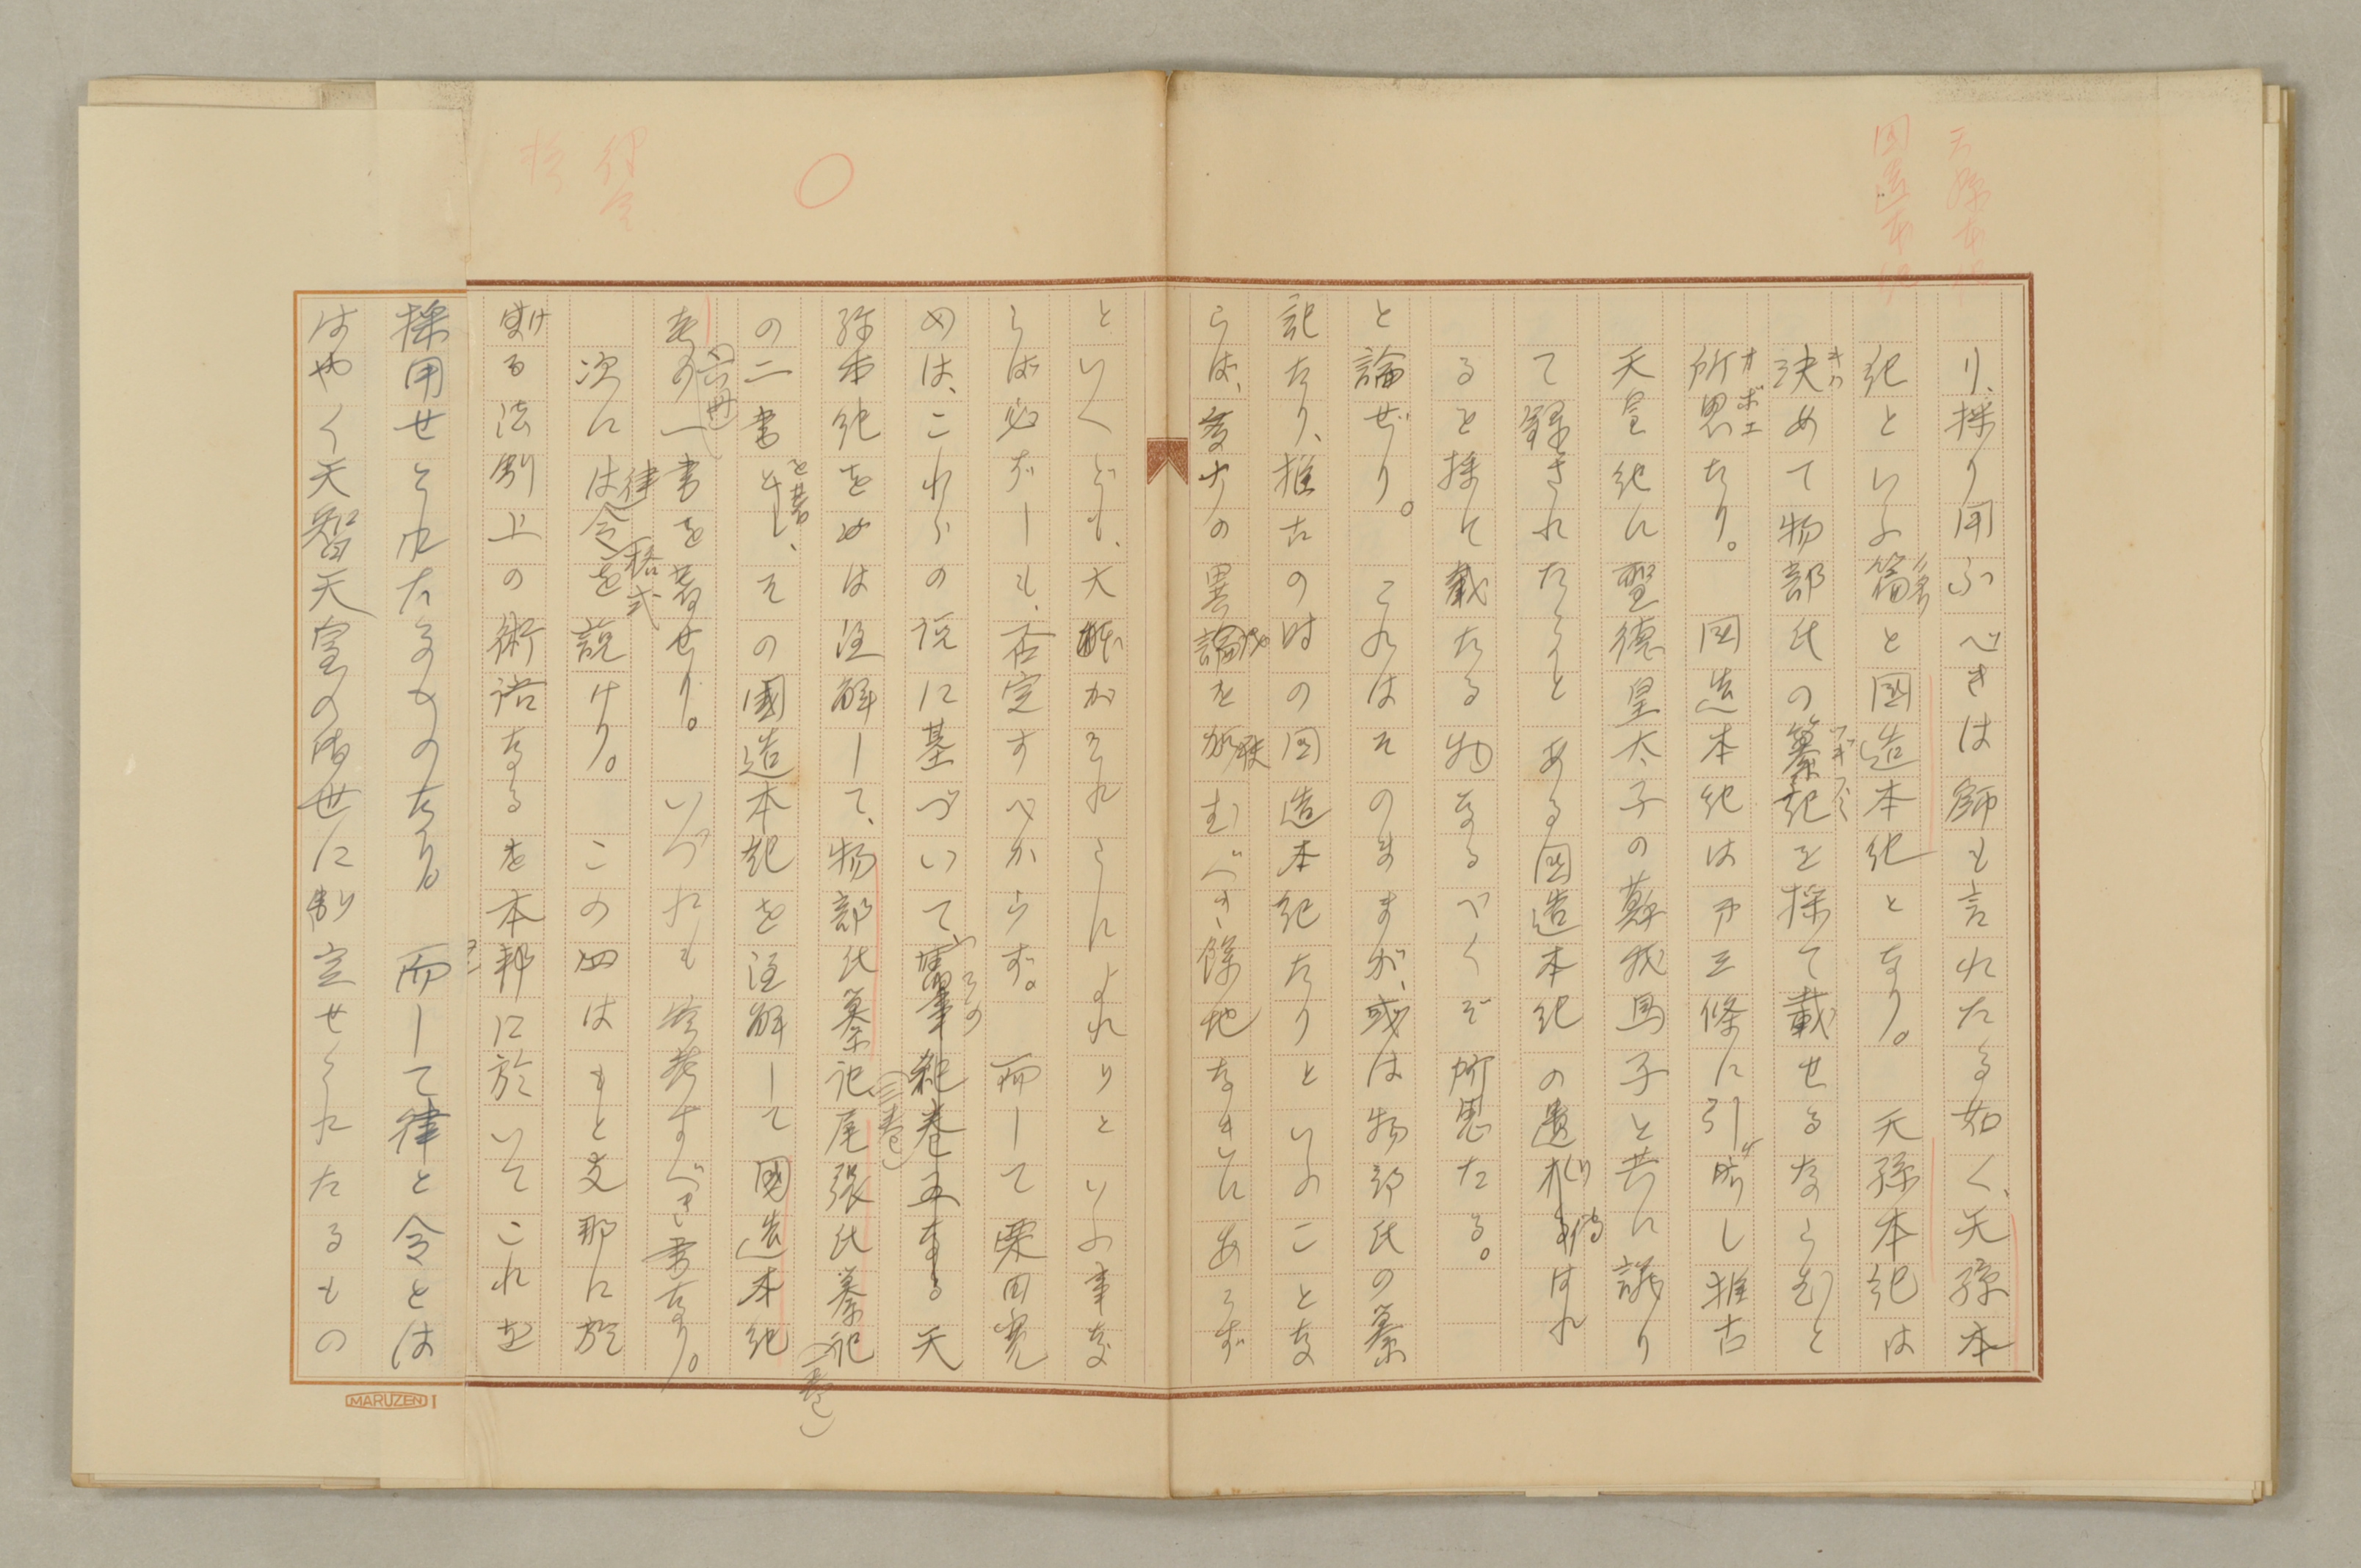 天孫本紀
国造本紀
り、採り用ふべきは師も言れたる如く、天孫本
紀といふ篇と國造本紀となり。 天孫本紀は
決めて物部氏の纂記を採て載せるならむと
所思たり。 国造本紀は第三條に引し推古
天皇紀に聖徳皇太子の蘇我馬子と共に議り
て録されたりとある国造本紀の遺れりげ
ると採て載たる物なるべくぞ所思たる。
と論ぜり。 これはそのままが、或は物部氏の纂
記たり、推古の時の国造本紀たりといふことな
らば、多少の異論を加むべき餘地なきにあらず
といへども、大概かそれらによれりといふ事な
らば必ずしも、否定すべからず。 而して栗田寛
のは、これらの説に基づいて、纂 天
孫本紀をば注解して、物部氏纂記、尾張氏纂記
(三巻)
(一巻)
の二書とし、その國造本紀を注解して國造本紀
を著
考の一書を著せり。 いづれも参考すべき書なり。
次には律令格式を説けり。 この四はもと支那に於
ける法制上の術語なるを本邦に於いてこれを
採用せられたるものなり。 而して律と令とは
はやく天智天皇の御世に制定せられたるもの
MARUZEN I